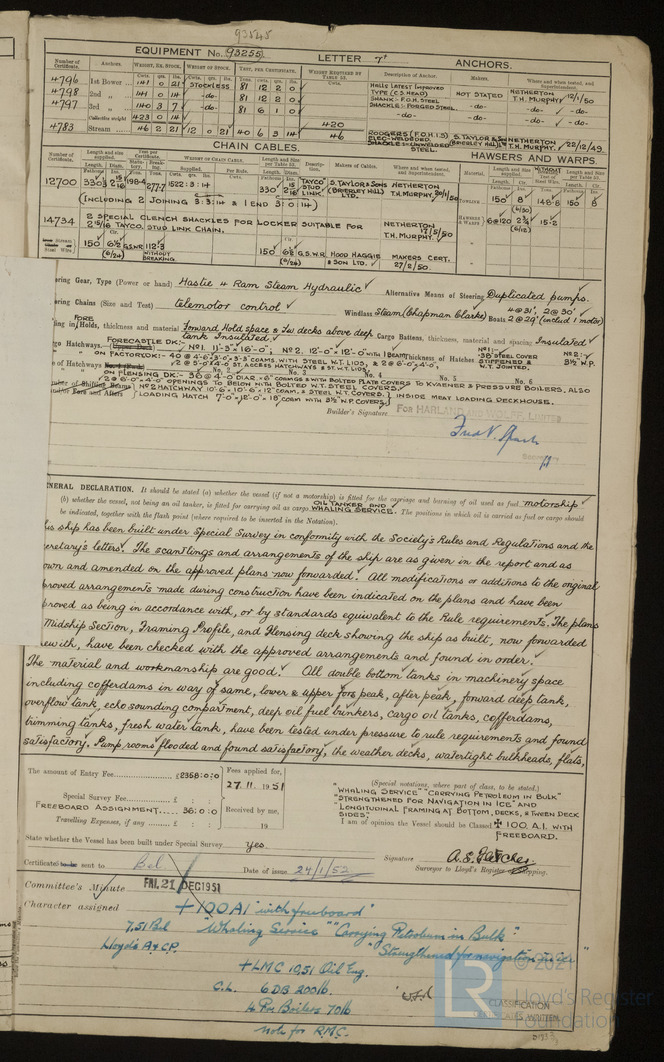 93545
EQUIPMENT No. 93255. LETTER 7† ANCHORS.
Number of Certificate. Anchors. WEIGHT, EX. STOCK. WEIGHT OF STOCK. TEST, PER CERTIFICATE. WEIGHT REQUIRED BY TABLE 53. Description of Anchor. Makers. Where and when tested, and Superintendent.
4796 1st Bower 141 0 21 STOCKLESS 81 12 2 0 HALLS LATEST IMPROVED TYPE (C.S. HEAD) NOT STATED NETHERTON T.H. MURPHY 12/1/50
4798 2nd „ 141 0 14 -do- 81 12 2 0 SHANK - F.O.H. STEEL SHACKLES: FORGED STEEL -do- -do-
4797 3rd „ 140 3 7 -do- 81 6 1 0 -do- -do- -do-
Collective weight 423 0 14 420
4783 Stream 46 2 21 12 0 21 40 6 3 14 46 RODGERS (F.O.H.I.S) ELEC-WELDED. SHACKLE-UNWELDED STEEL. S. TAYLOR & SONS (BRIERLEY HILL) LTD. NETHERTON T.H. MURPHY. 22/12/49
CHAIN CABLES. HAWSERS AND WARPS.
12700 330 2 15/16 198·4 277·7 1522:3:14 330 2 15/16 "TAYCO" STUD LINK S. TAYLOR & SONS (BRIERLEY HILL) LTD. NETHERTON T.H. MURPHY. TOWLINE 150 8 148·8 150 8
(INCLUDING 2 JOINING 3:3:14 & 1 END 3:0:14)
14734 2 SPECIAL CLENCH SHACKLES FOR LOCKER SUITABLE FOR 2 15/16 TAYCO. STUD LINK CHAIN. NETHERTON T.H. MURPHY. 17/5/50 HAWSERS & WARPS 6@120 2¾ 15·2
Stream Steel Wire 150 6½ G.S.W.R 112·3 WITHOUT BREAKING 150 6½ G.S.W.R HOOD HAGGIE & SON LTD. MAKERS CERT. 27/2/50.
ering Gear, Type (Power or hand) Hastie 4 Ram Steam Hydraulic Alternative Means of Steering Duplicated pumps.
ering Chains (Size and Test) telemotor control Windlass Steam (Chapman Clarke) Boats 4 @ 31', 2 @ 30' 2 @ 29' (includ 1 motor)
ling in FORE Holds, thickness and material Forward Hold space & Tw decks above deep tank Insulated. Cargo Battens, thickness, material and spacing Insulated
rgo Hatchways. FORECASTLE DK:- No 1. 11'-3" × 16'-0"; No 2. 12'-0" × 12'-0" with 1 BEAM Thickness of Hatches No 1:- 3/8 STEEL COVER STIFFENED & W.T. JOINTED. No 2:- 3½" W.P.
ON FACTORY DK:- 40 @ 4'-6" × 3'-0" × 3" COAMS. WITH STEEL W.T. LIDS, & 2 @ 6'-0" × 4'-0",
of Hatchways 2 @ 5'-0" × 4'-0 ST. ACCESS HATCHWAYS & ST. W.T. LIDS.
ON FLENSING DK:- 36 @ 4'-0 DIAR × 6" COAMGS & WITH BOLTED PLATE COVERS TO KVAENER & PRESSURE BOILERS. ALSO
2 @ 6'-0" × 4'-0" OPENINGS TO BELOW WITH BOLTED W.T. STEEL COVERS.
No 2 HATCHWAY 10'-6" × 10'-6" × 12" COAM, & STEEL W.T. COVERS. } INSIDE MEAT LOADING DECKHOUSE.
LOADING HATCH 7'-0" × 12'-0" × 18" COAM WITH 3½" W.P. COVERS.
Builder's Signature FOR HARLAND AND WOLFF, LIMITED
SECRETARY
ENERAL DECLARATION. It should be stated (a) whether the vessel (if not a motorship) is fitted for the carriage and burning of oil used as fuel motorship
(b) whether the vessel, not being an oil tanker, is fitted for carrying oil as cargo OIL TANKER AND WHALING SERVICE. The positions in which oil is carried as fuel or cargo should
be indicated, together with the flash point (where required to be inserted in the Notation).
is ship has been built under Special Survey in conformity with the Society's Rules and Regulations and the
cretary's letters. The scantlings and arrangements of the ship are as given in the report and as
own and amended on the approved plans now forwarded. All modifications or additions to the original
proved arrangements made during construction have been indicated on the plans and have been
proved as being in accordance with, or by standards equivalent to the Rule requirements. The plans
Midship Section, Framing Profile, and Flensing deck showing the ship as built, now forwarded
ewith, have been checked with the approved arrangements and found in order.
The material and workmanship are good. All double bottom tanks in machinery space
including cofferdams in way of same, lower & upper fore peak, after peak, forward deep tank,
overflow tank, echo sounding compartment, deep oil fuel bunkers, cargo oil tanks, cofferdams,
trimming tanks, fresh water tank, have been tested under pressure to rule requirements and found
satisfactory. Pump rooms flooded and found satisfactory, the weather decks, watertight bulkheads, flats,
The amount of Entry Fee £2358:0:0 Fees applied for, 27.11.1951
Special Survey Fee £ : :
FREEBOARD ASSIGNMENT 36:0:0 Received by me,
Travelling Expenses, if any £ : : 19
(Special notations, where part of class, to be stated.)
"WHALING SERVICE" "CARRYING PETROLEUM IN BULK"
"STRENGTHENED FOR NAVIGATION IN ICE" AND
"LONGITUDINAL FRAMING AT BOTTOM, DECKS, & TWEEN DECK SIDES".
I am of opinion the Vessel should be Classed ✠ 100. A.I. WITH FREEBOARD.
State whether the Vessel has been built under Special Survey Yes
Signature
Surveyor to Lloyd's Register of Shipping.
Certificate to be sent to Bel Date of issue 24/1/52
Committee's Minute FRI. 21 DEC 1951
Character assigned +100A1 "with freeboard"
7.51 Bel "Whaling Service" "Carrying Petroleum in Bulk"
Lloyd's A & C.P. "Strengthened for navigation in ice"
+LMC 10,51 Oil Eng.
C.L. 6 DB 200 lb.
4 For Boilers 70 lb
note for R.M.C.
CLASSIFICATION CERTIFICATES WRITTEN.
LR © 2021
Lloyd's Register
Foundation